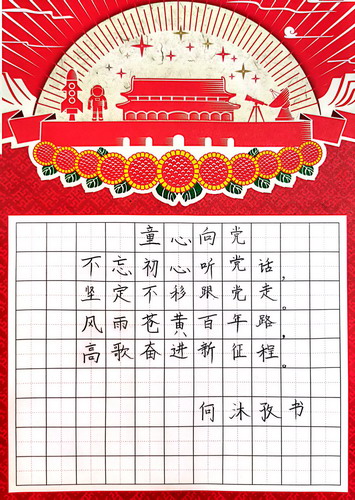 童心向党
不忘初心听党话，
坚定不移跟党走。
风雨苍黄百年路，
高歌奋进新征程。
何沐孜书